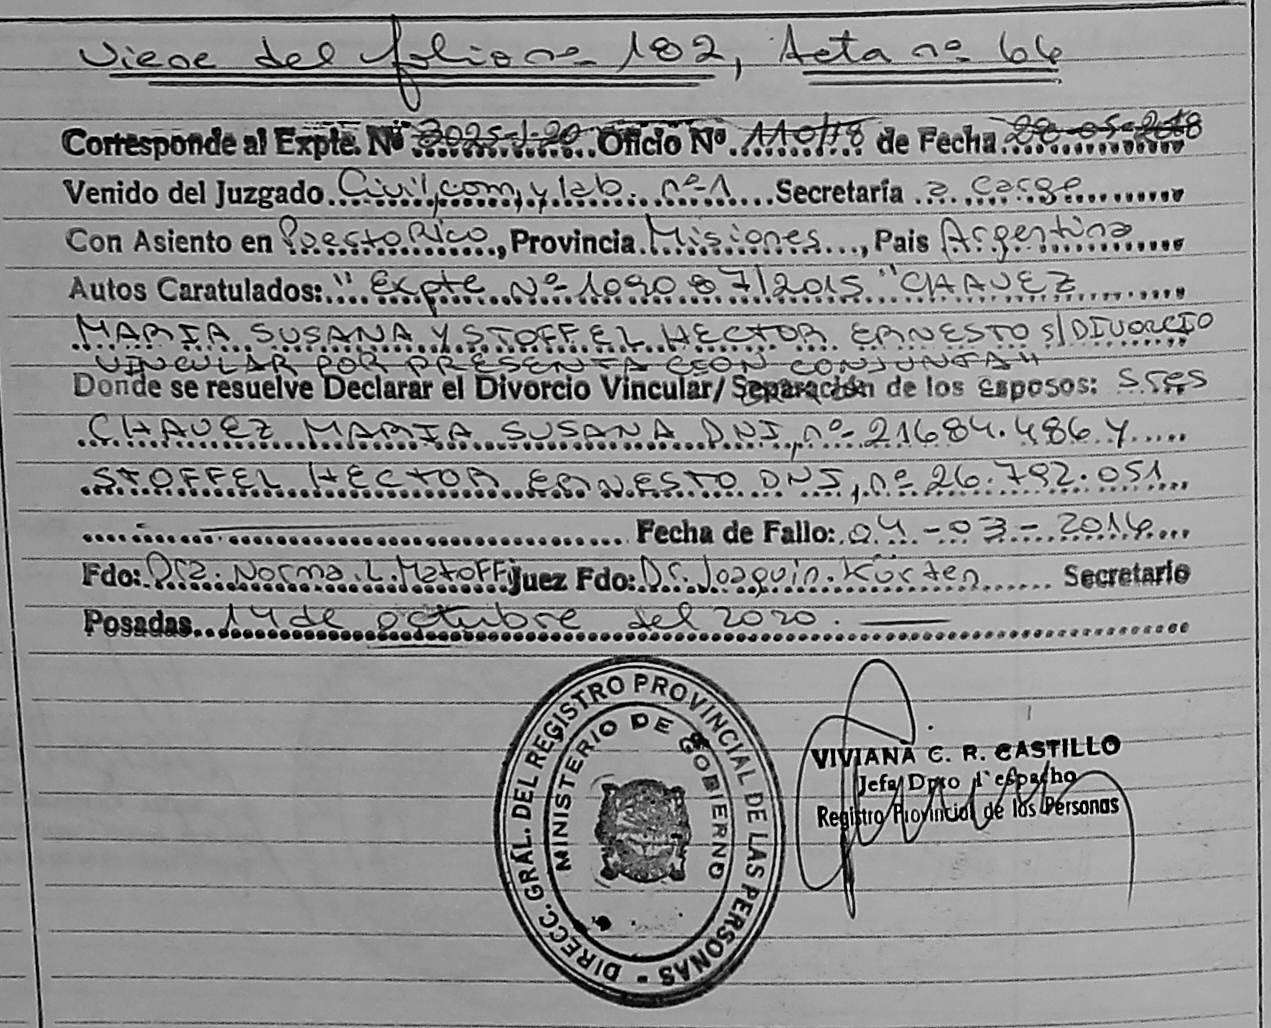 Viene del folio nº 182, Acta nº 64
Corresponde al Expte. Nº 3025-J-20 Oficio Nº 110/18 de Fecha 28-05-2018
Venido del Juzgado Civil, com, y lab. nº-1 Secretaría a cargo
Con Asiento en Puerto Rico, Provincia Misiones, Pais Argentina
Autos Caratulados: "Expte Nº 109087/2015 "CHAVEZ
MARIA SUSANA Y STOFFEL HECTOR ERNESTO S/DIVORCIO
VINCULAR POR PRESENTACION CONJUNTA"
Donde se resuelve Declarar el Divorcio Vincular/ Separación de los esposos: Sres
CHAVEZ MARIA SUSANA DNI, nº 21684.486 Y
STOFFEL HECTOR ERNESTO DNI, nº 26.792.051
Fecha de Fallo: 04-03-2016
Fdo: Dra. Norma. L. Matoff Juez Fdo: Dr. Joaquin. Kürten Secretario
Posadas 14 de octubre del 2020.
DIRECC. GRAL. DEL REGISTRO PROVINCIAL DE LAS PERSONAS -
MINISTERIO DE GOBIERNO
VIVIANA C. R. CASTILLO
Jefa Dpto Despacho
Registro Provincial de las Personas